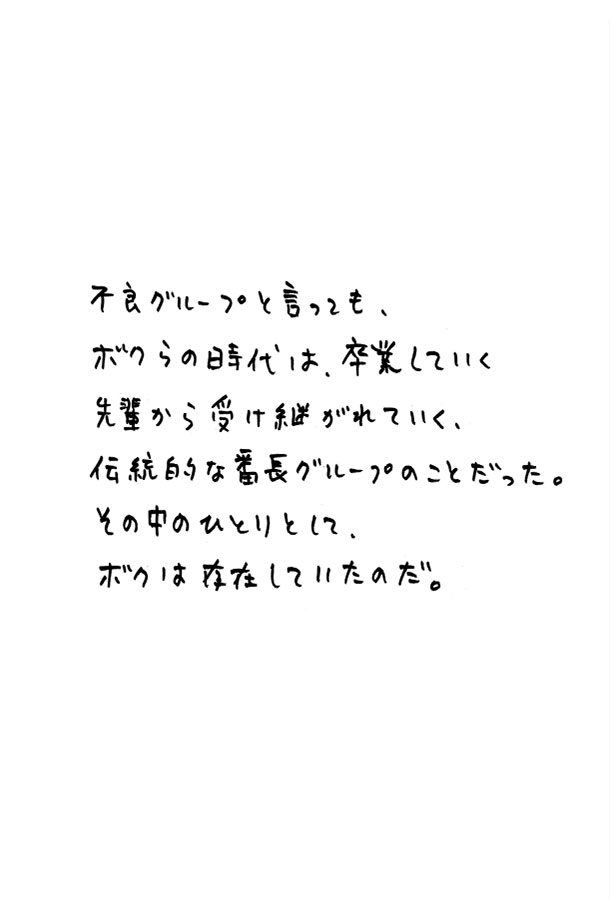 不良グループと言っても、
ボクらの時代は、卒業していく
先輩から受け継がれていく、
伝統的な番長グループのことだった。
その中のひとりとして、
ボクは存在していたのだ。